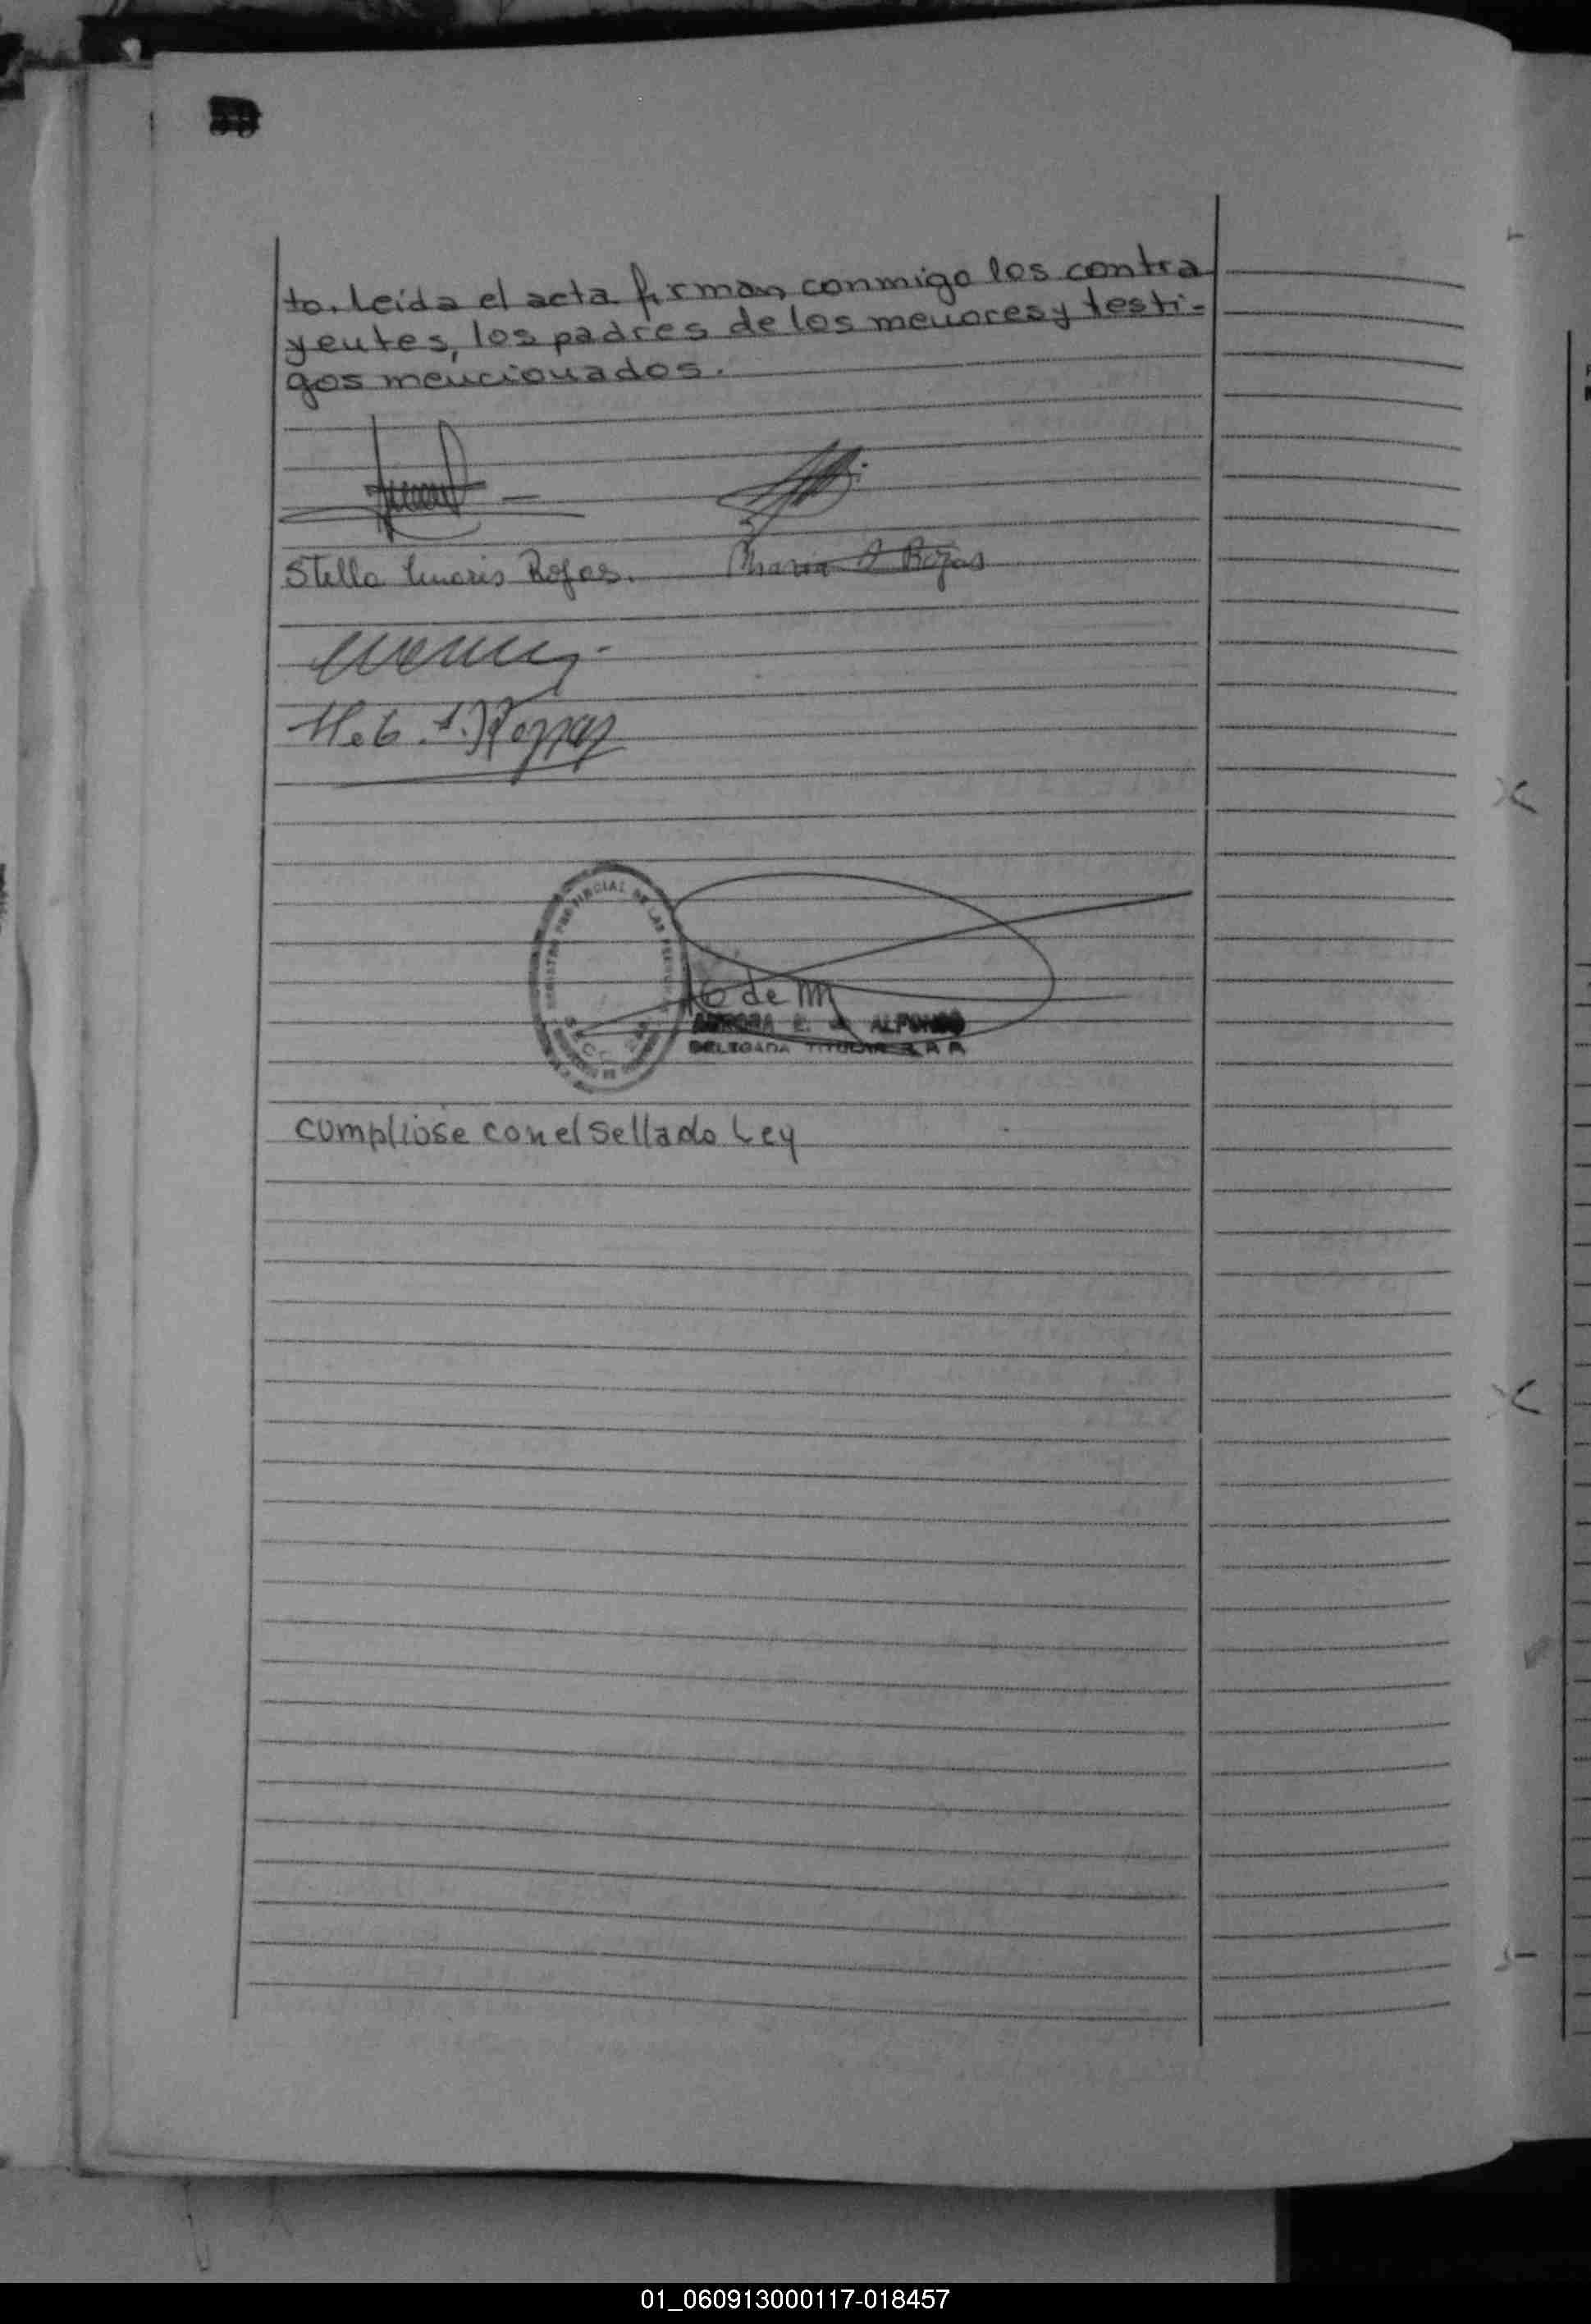 to. Leída el acta firman conmigo los contra
yentes, los padres de los menores y testi-
gos mencionados.
Stella Maris Rojas. Maria A Rojas
REGISTRO PROVINCIAL DE LAS PERSONAS
de
AURORA E. de ALFONSO
DELEGADA TITULAR
cumpliose con el sellado Ley
01_060913000117-018457